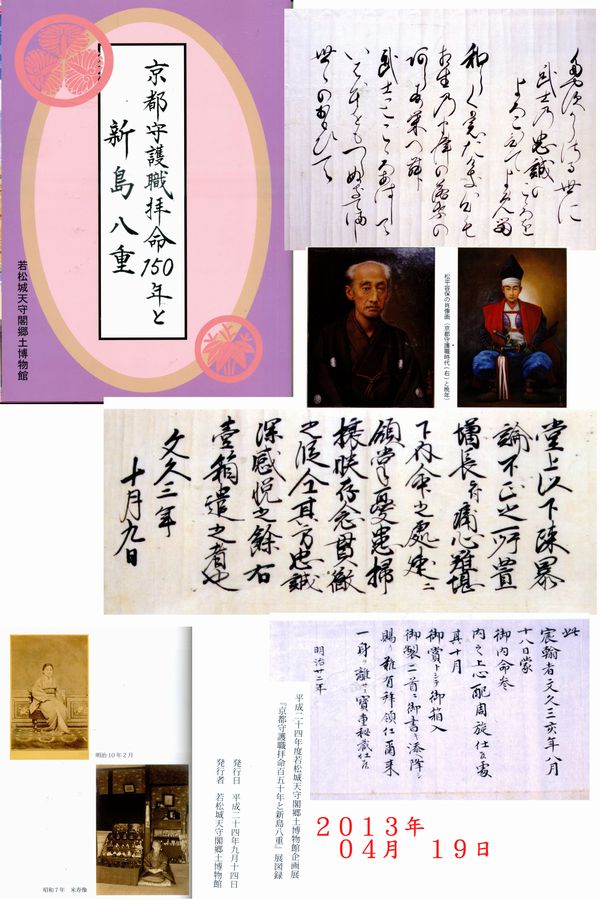 京都守護職拝命150年と
新島八重
若松城天守閣郷土博物館
武士の忠誠の
世々のおもひて
松平容保の肖像画(京都守護職時代(右)と晩年)
堂上以下疎暴
論不正之所置
増長付痛心難堪
下内命之處速ニ
領掌憂患掃
攘朕存念貫徹
之段全其方忠誠
深感悦之餘右
壹箱遣之者也
文久三年
十月九日
此
宸翰者文久三亥年八月
十八日蒙
御内命参
内之上心配周旋仕候處
其十月
御賞トシテ御箱入
御製二首ニ御書ヲ添降シ
賜リ難有拝領仕爾来
一身ヲ離サス寶重秘蔵仕候
明治廿二年
明治10年2月
昭和7年 米寿像
平成二十四年度若松城天守閣郷土博物館企画展
『京都守護職拝命百五十年と新島八重』展図録
発行日 平成二十四年九月十四日
発行者 若松城天守閣郷土博物館
2013年
04月 19日